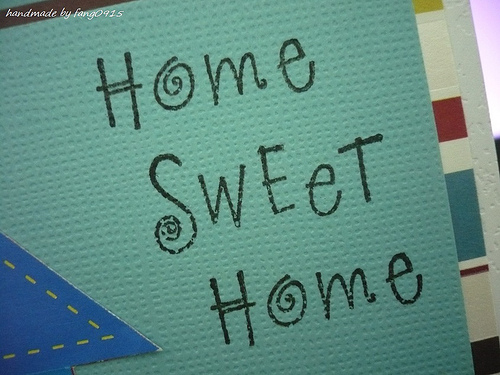 handmade by fang0915
Home
SWEeT
Home